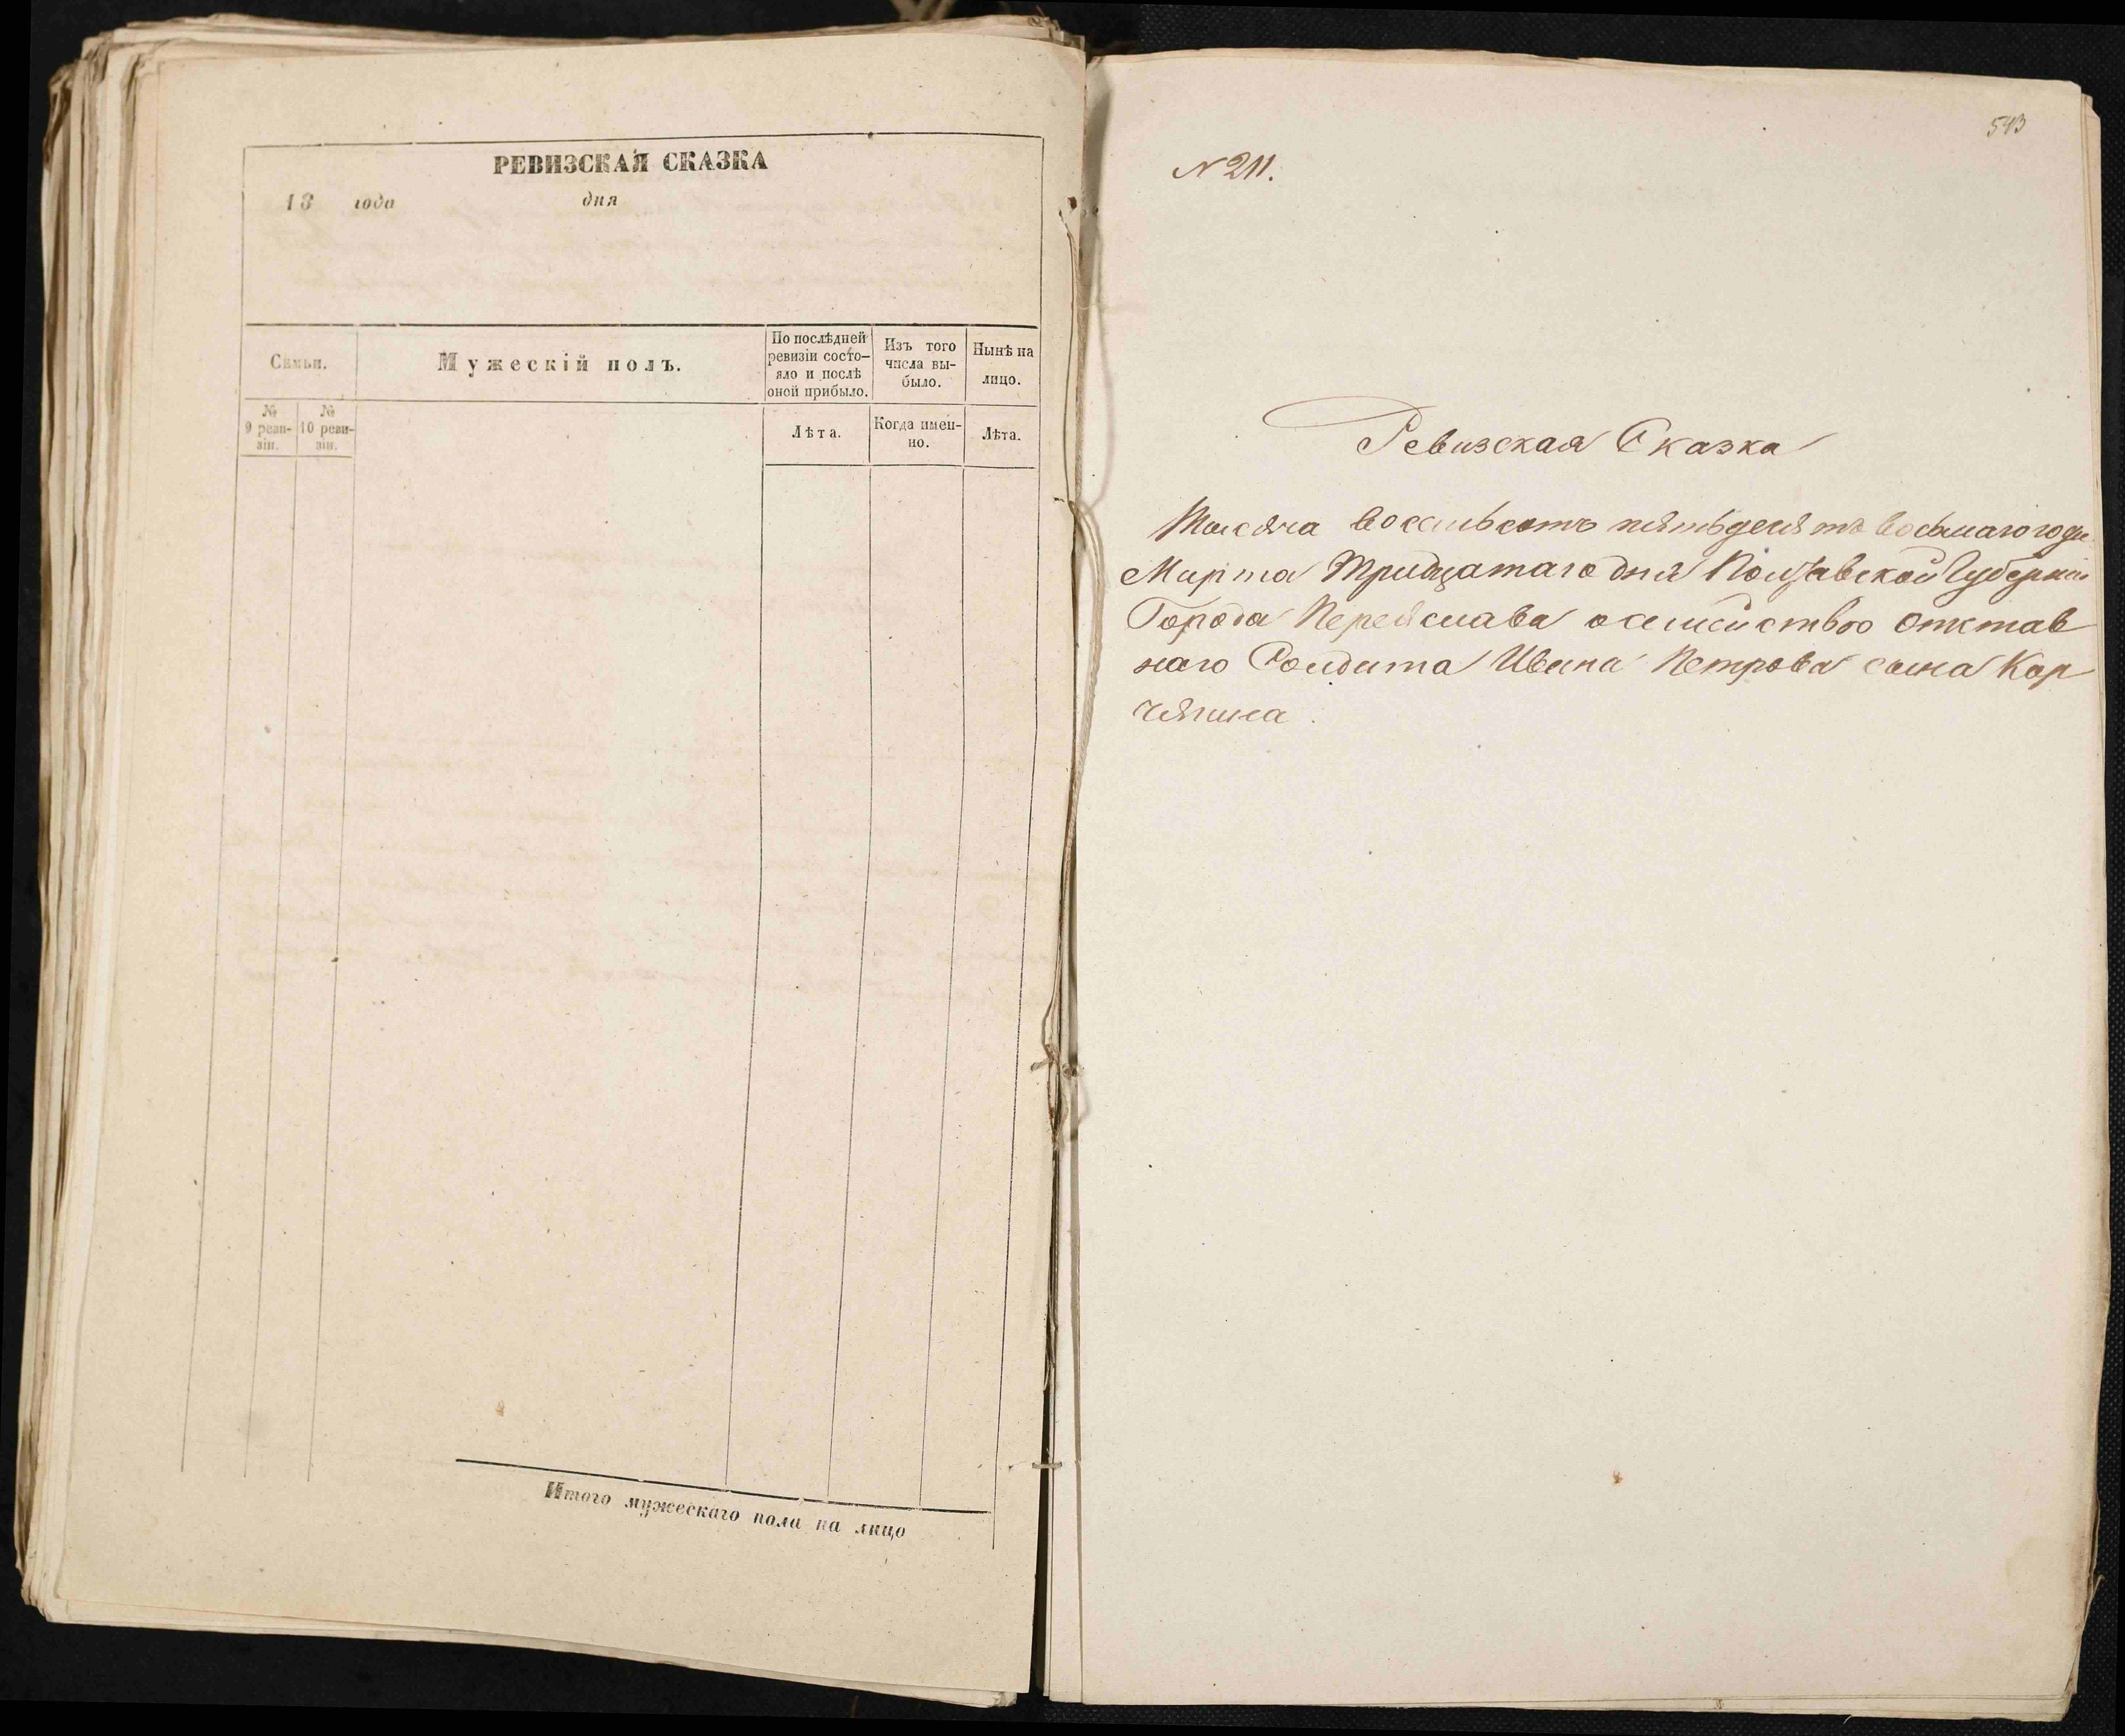 РЕВИЗСКАЯ СКАЗКА
18 года дня
Семьи.
Мужескій полъ.
По послѣдней
ревизіи состо-
яло и послѣ
оной прибыло.
Изъ того
числа вы-
было.
Нынѣ на
лицо.
№
9 реви-
зіи.
№
10 реви-
зіи.
Лѣта.
Когда имен-
но.
Лѣта.
Итого мужескаго пола на лицо
543
N 211.
Ревизская Сказка
Тысяча восемьсотъ пятьдесятъ восьмаго года
Марта Тридцатаго дня Полтавской Губерніи
Города Переяслава о семействѣ Отстав
наго Солдата Ивана Петрова сына Кор